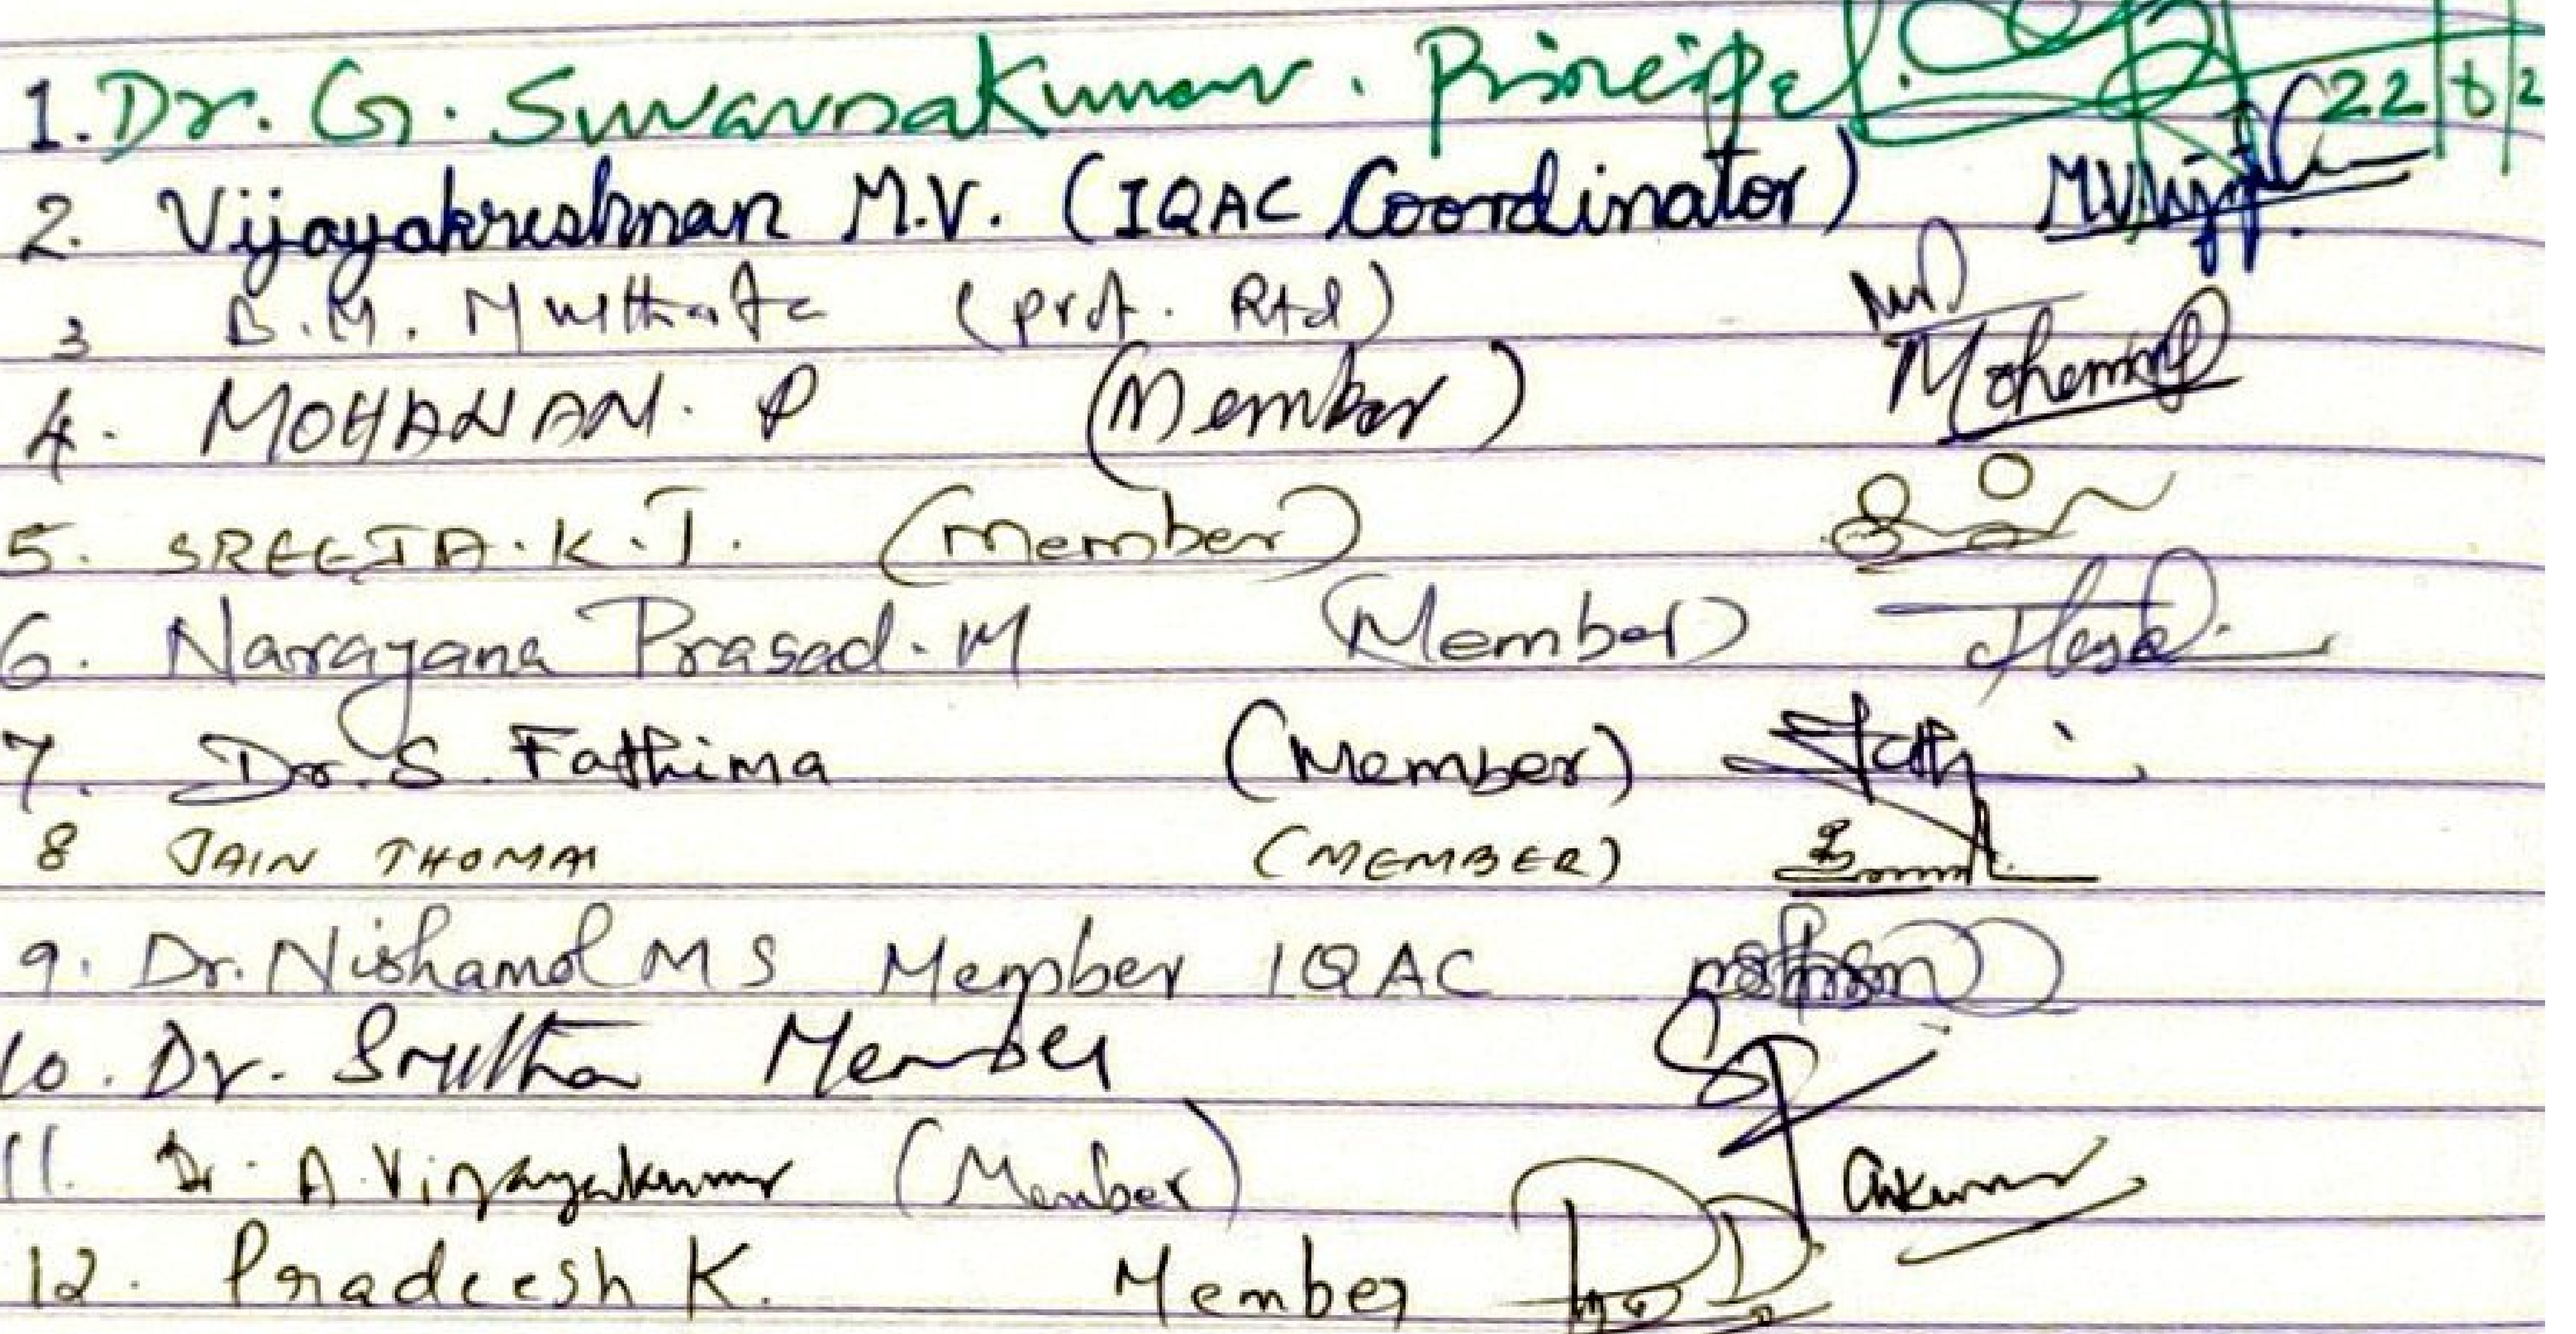 1. Dr. G. Suvarnakumar. Principal. 22/6/2
2. Vijayakrishnan M.V. (IQAC Coordinator)
3 B.M. Mutthafa (prof. Rtd)
4. MOHANAN. P (Member) Mohanan
5. SREEJA.K.T. (Member)
6. Narayana Prasad. M (Member)
7. Dr. S. Fathima (Member)
8 JAIN THOMAS (MEMBER)
9. Dr. Nishamol M S Member IQAC
10. Dr. Smitha Member
11. Dr. A. Vijayakumar (Member)
12. Pradeesh K. Member